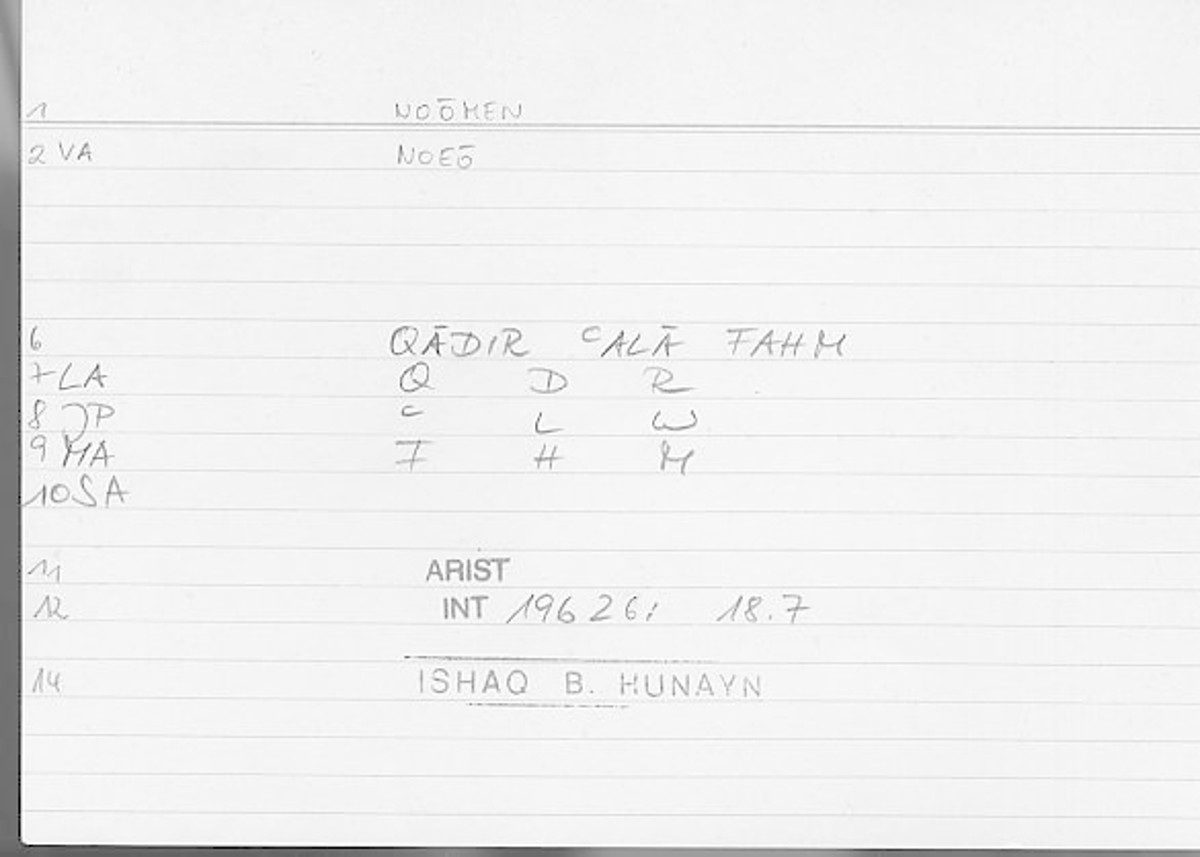 1 NOŌMEN
2 VA NOEŌ
6 QĀDIR ᶜALĀ FAHM
7 LA Q D R
8 JP ᶜ L W
9 MA F H M
10 SA
11 ARIST
12 INT 196 26; 18.7
14 ISHAQ B. HUNAYN